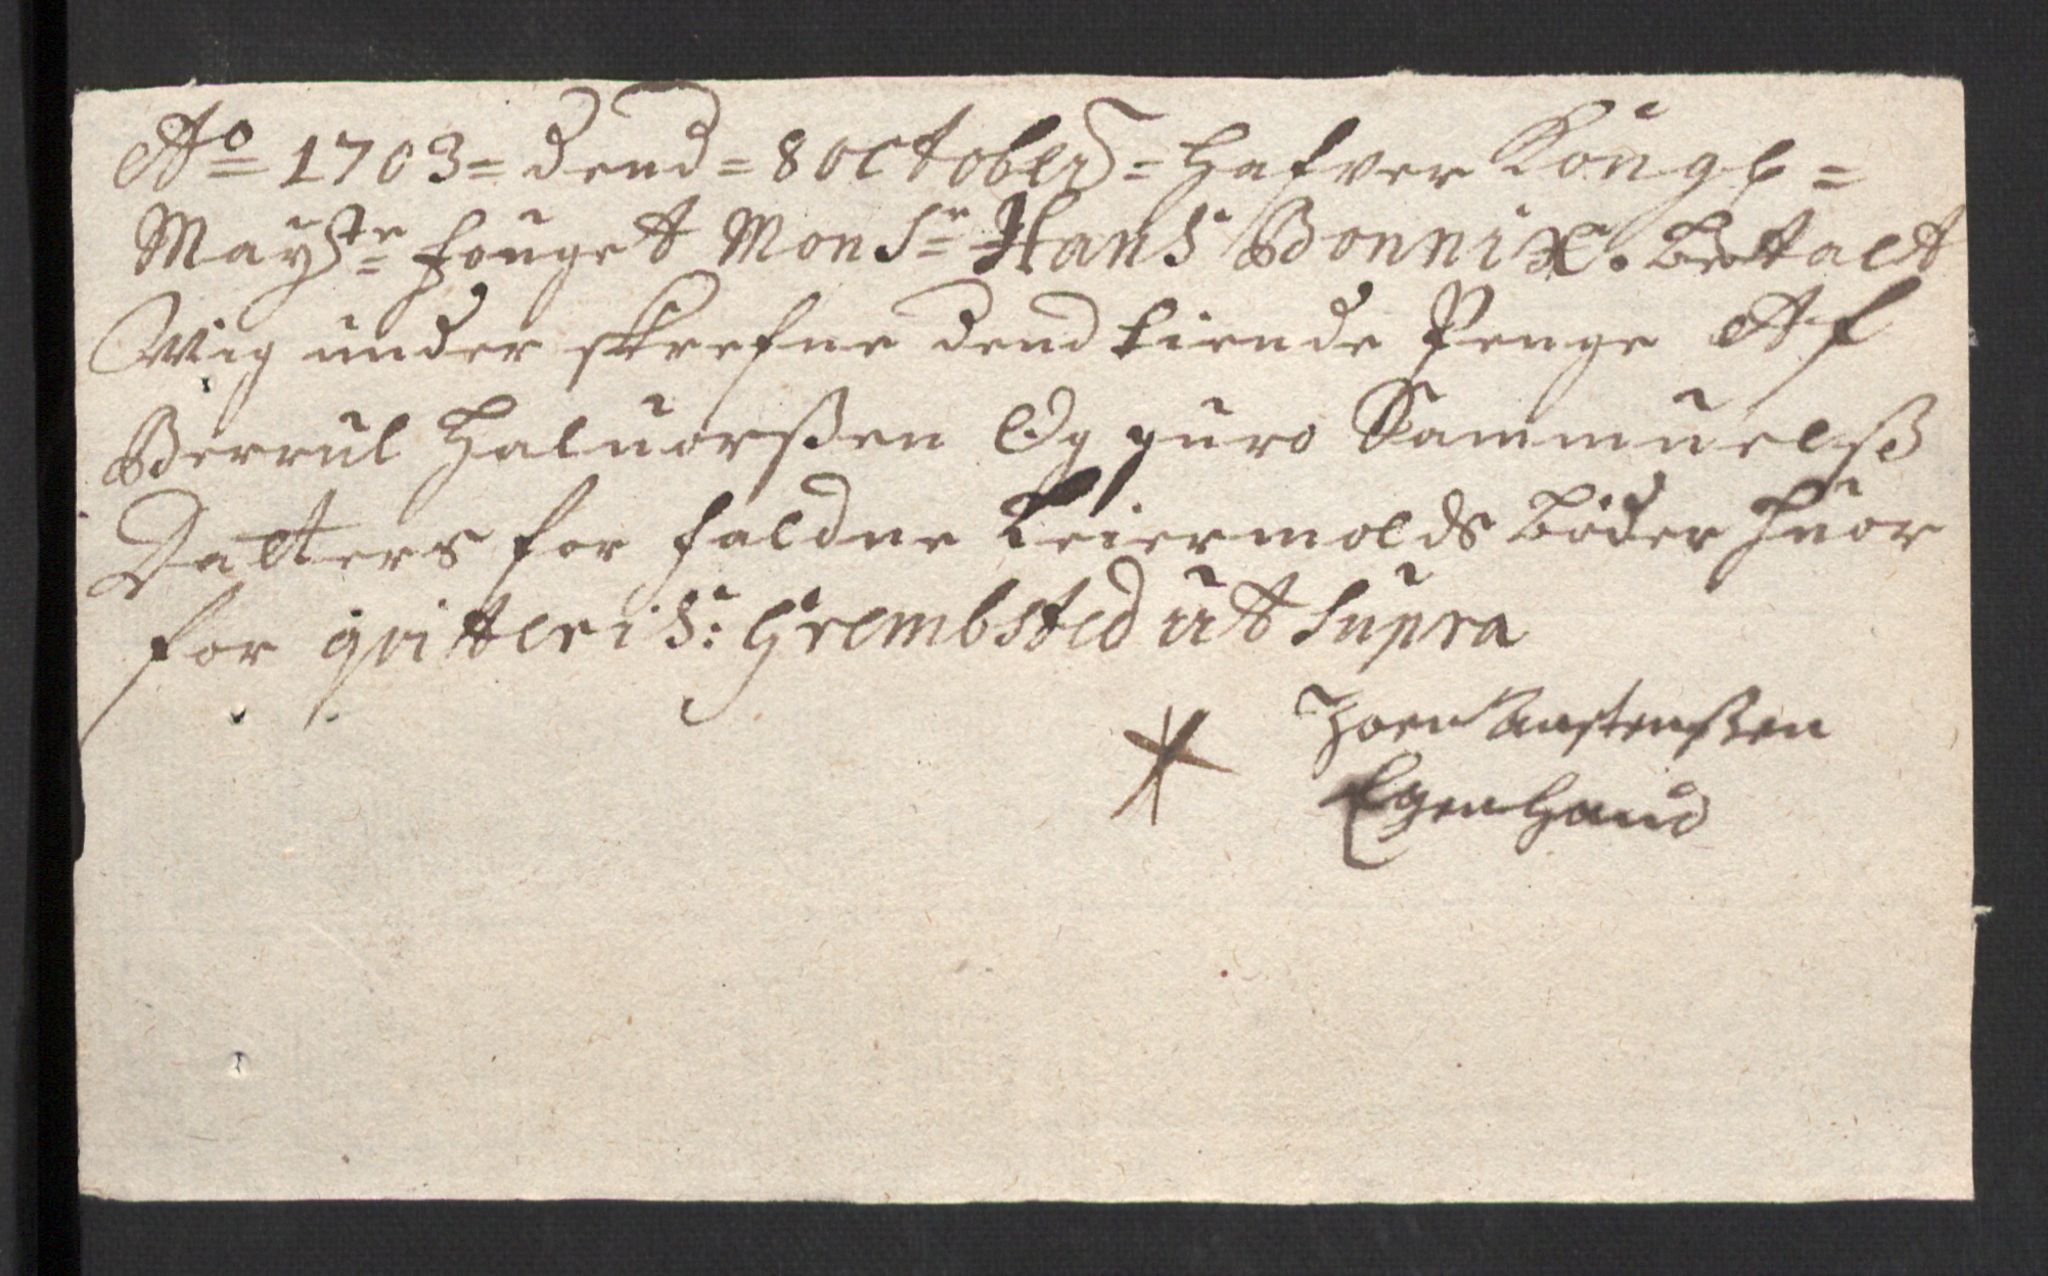 Ao 1703 = dend = 8 october = Hafver Kongl =
Mayst. fouget Monsr Hans Bonnix. Betalt
Mig under skrefne dend tiende Penge Af
Berrul Haluorßen Og guro Sammuelß
Datters for faldne Leiermolds Böder huor
for qvitteris: Grembsted ut Supra
Austenßen
Egen Haand